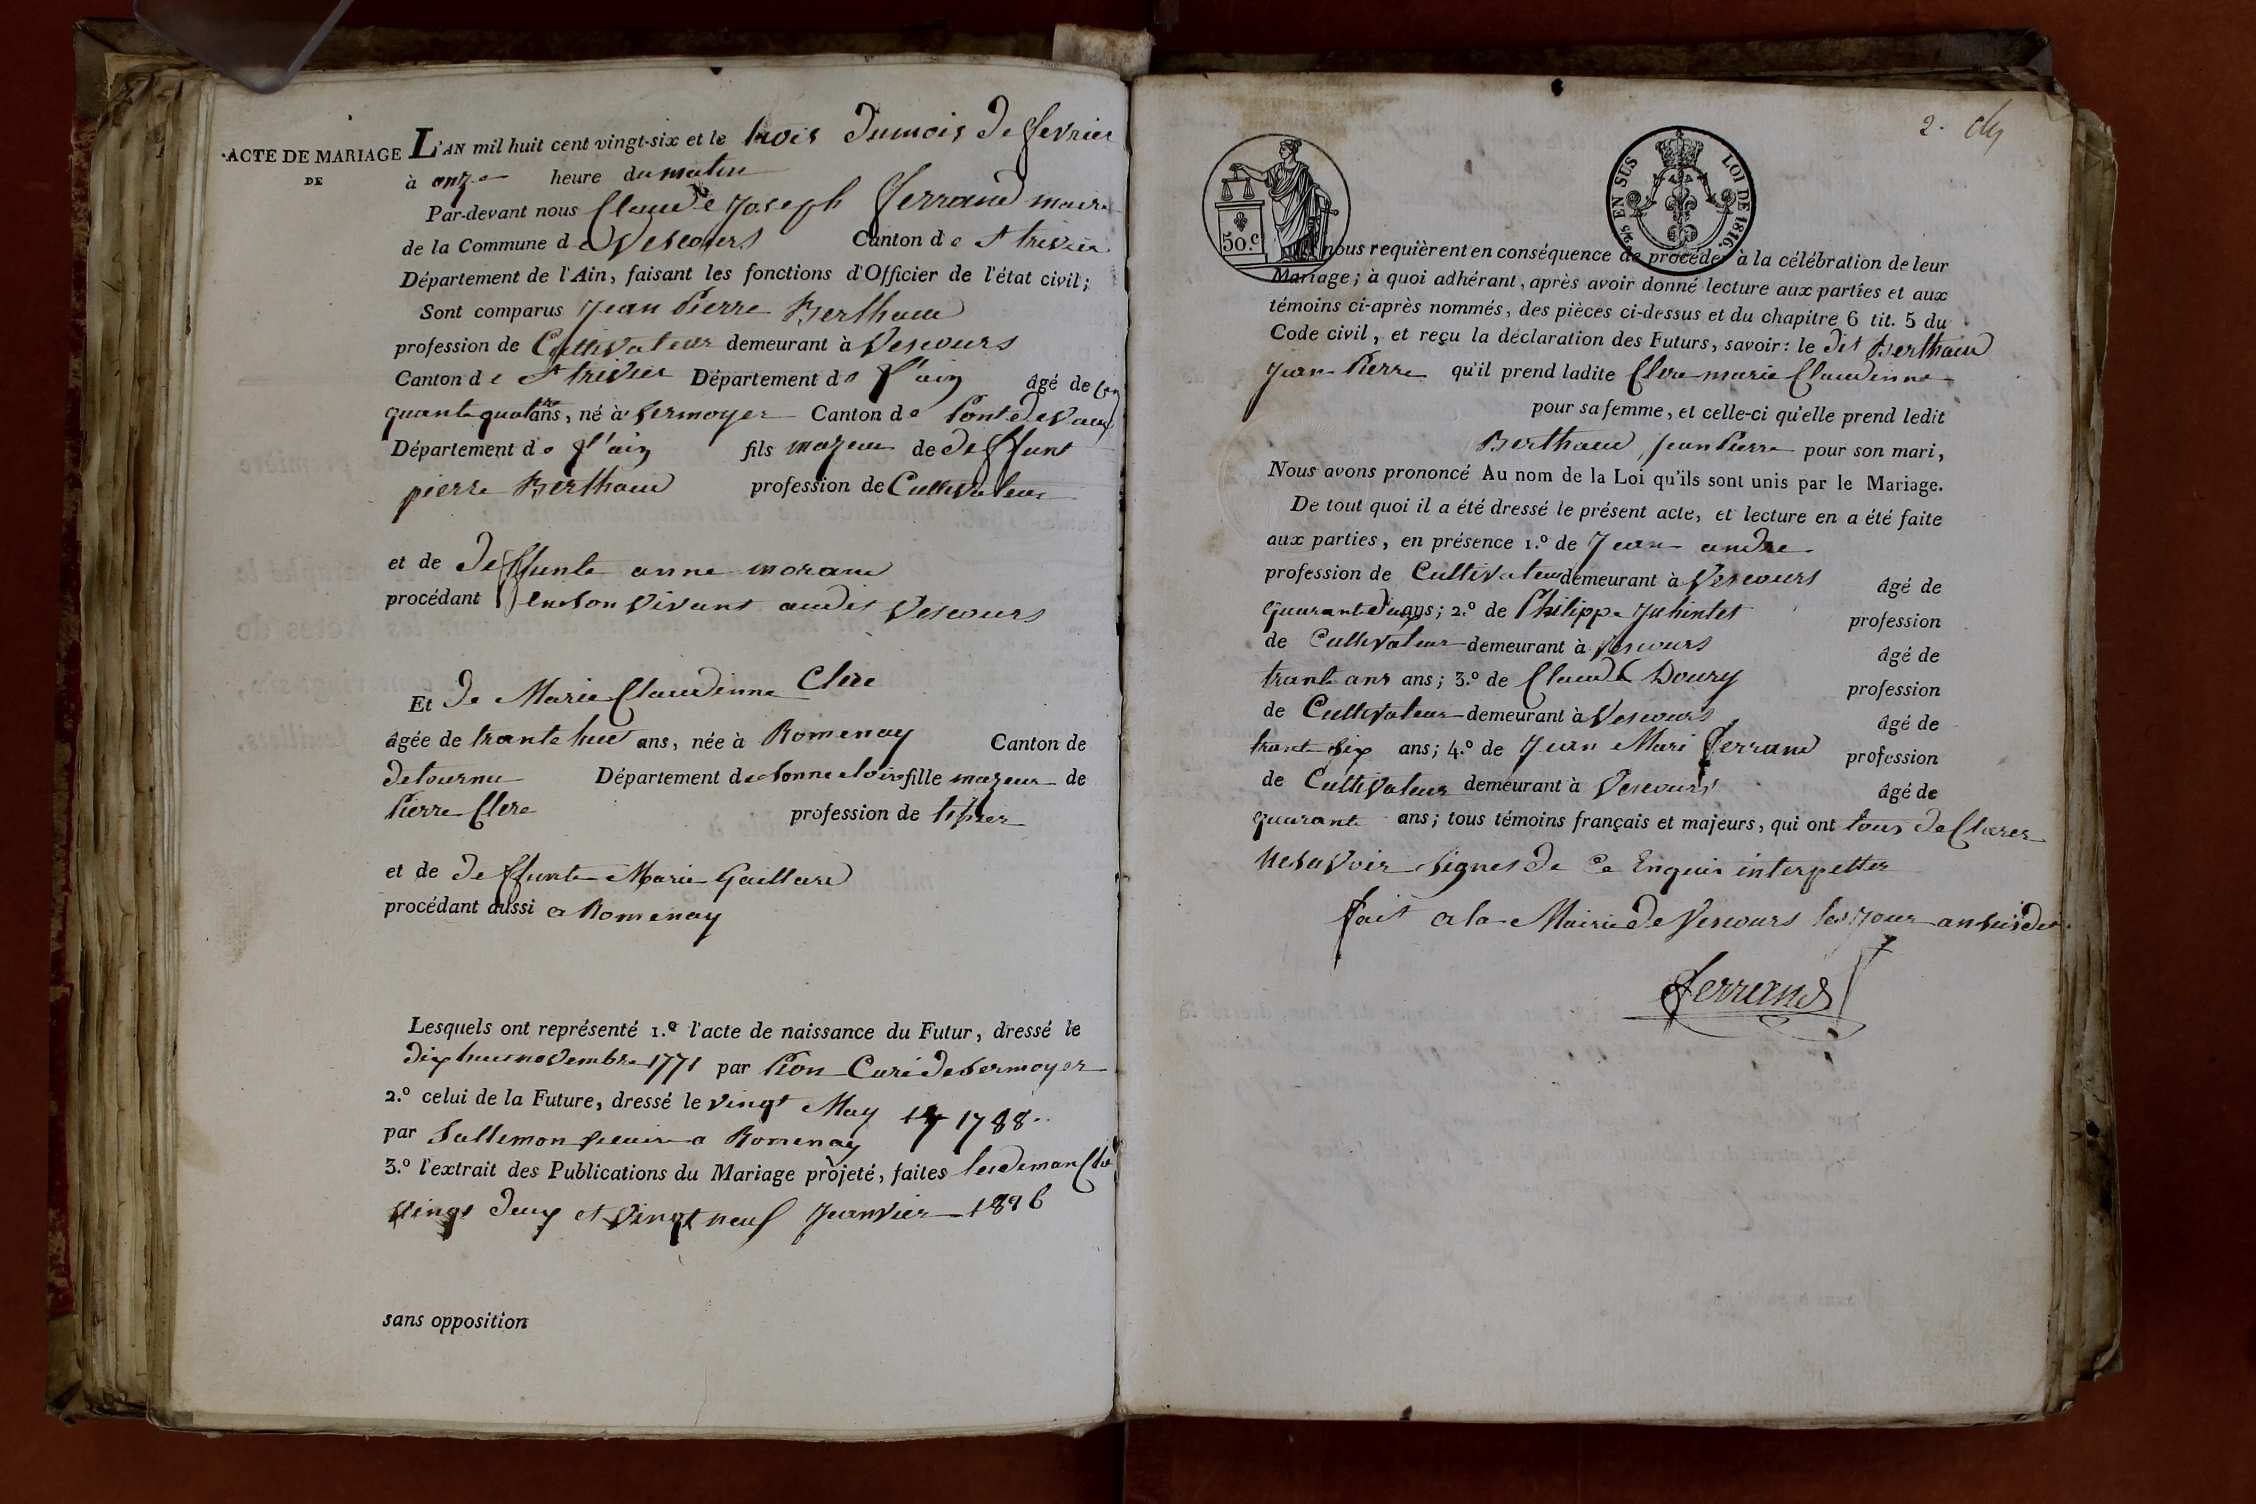 ACTE DE MARIAGE
DE
L'AN mil huit cent vingt-six et le trois dumois de fevrier
à onze heure du matin
Par-devant nous Claude Joseph Ferrand maire
de la Commune de Vescours Canton de St trivier
Département de l'Ain, faisant les fonctions d'Officier de l'état civil;
Sont comparus Jean Pierre Berthaud
profession de Cultivateur demeurant à Vescours
Canton de St trivier Département de l'ain âgé de cin
quante quatre ans, né à Sermoyer Canton de Pont de Vaux
Département de l'ain fils mazeur de deffunt
pierre Berthaud profession de Cultivateur
et de deffunte anne morand
procédant en son vivant audit Vescours
Et de Marie Claudinne Clere
âgée de trante huit ans, née à Romenay Canton de
detournu Département de Sonne eloire fille mazeur de
Pierre Clere profession de tissier
et de deffunte Marie Gaillard
procédant aussi a Romenay
Lesquels ont représenté 1.º l'acte de naissance du Futur, dressé le
dix huit novembre 1771 par Pion Curé de Sermoyer
2.º celui de la Future, dressé le vingt May 17 1788
par Sallemon a Romenay
3.º l'extrait des Publications du Mariage projeté, faites les dimanche
vingt deux et vingt neuf Janvier 1826
sans opposition
2.
50.c
EN SUS LOI DE 1816.
nous requièrent en conséquence de procéder à la célébration de leur
Mariage; à quoi adhérant, après avoir donné lecture aux parties et aux
témoins ci-après nommés, des pièces ci-dessus et du chapitre 6 tit. 5 du
Code civil, et reçu la déclaration des Futurs, savoir: le dit Berthaud
Jean Pierre qu'il prend ladite Clere marie Claudinne
pour sa femme, et celle-ci qu'elle prend ledit
Berthaud Jean Pierre pour son mari,
Nous avons prononcé Au nom de la Loi qu'ils sont unis par le Mariage.
De tout quoi il a été dressé le présent acte, et lecture en a été faite
aux parties, en présence 1.º de Jean andre
profession de Cultivateur demeurant à Vescours âgé de
quarant ans; 2.º de Philippe profession
de Cultivateur demeurant à Vescours âgé de
trante ans ans; 3.º de Claude Doury profession
de Cultivateur demeurant à Vescours âgé de
trant six ans; 4.º de Jean Mari Ferrand profession
de Cultivateur demeurant à Vescours âgé de
quarante ans; tous témoins français et majeurs, qui ont tous declarer
ne savoir signer de ce Enquis interpetter
fait a la Mairie de Vescours les jour an susdet
Ferrand